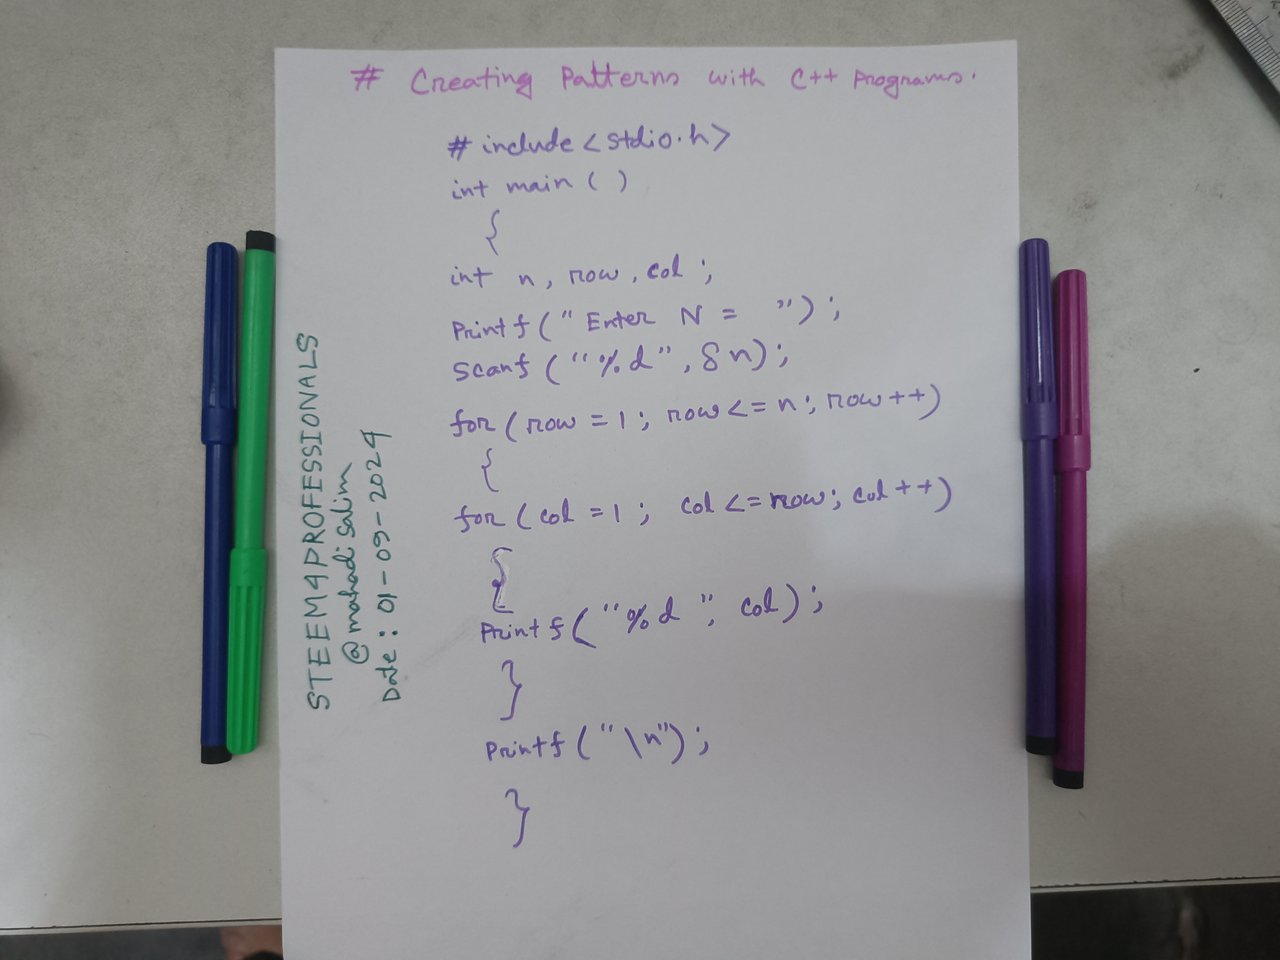 # Creating Patterns with C++ Programs.
# include <stdio.h>
int main ( )
{
int n, row, col ;
Printf (" Enter N = ") ;
Scanf ("%d", &n) ;
for (row = 1 ; row <= n ; row ++)
{
for (col = 1 ; col <= row ; col ++)
{
Printf ("%d ", col) ;
}
Printf ("\n") ;
}
STEEM4PROFESSIONALS
@mahadisalim
Date : 01-09-2024